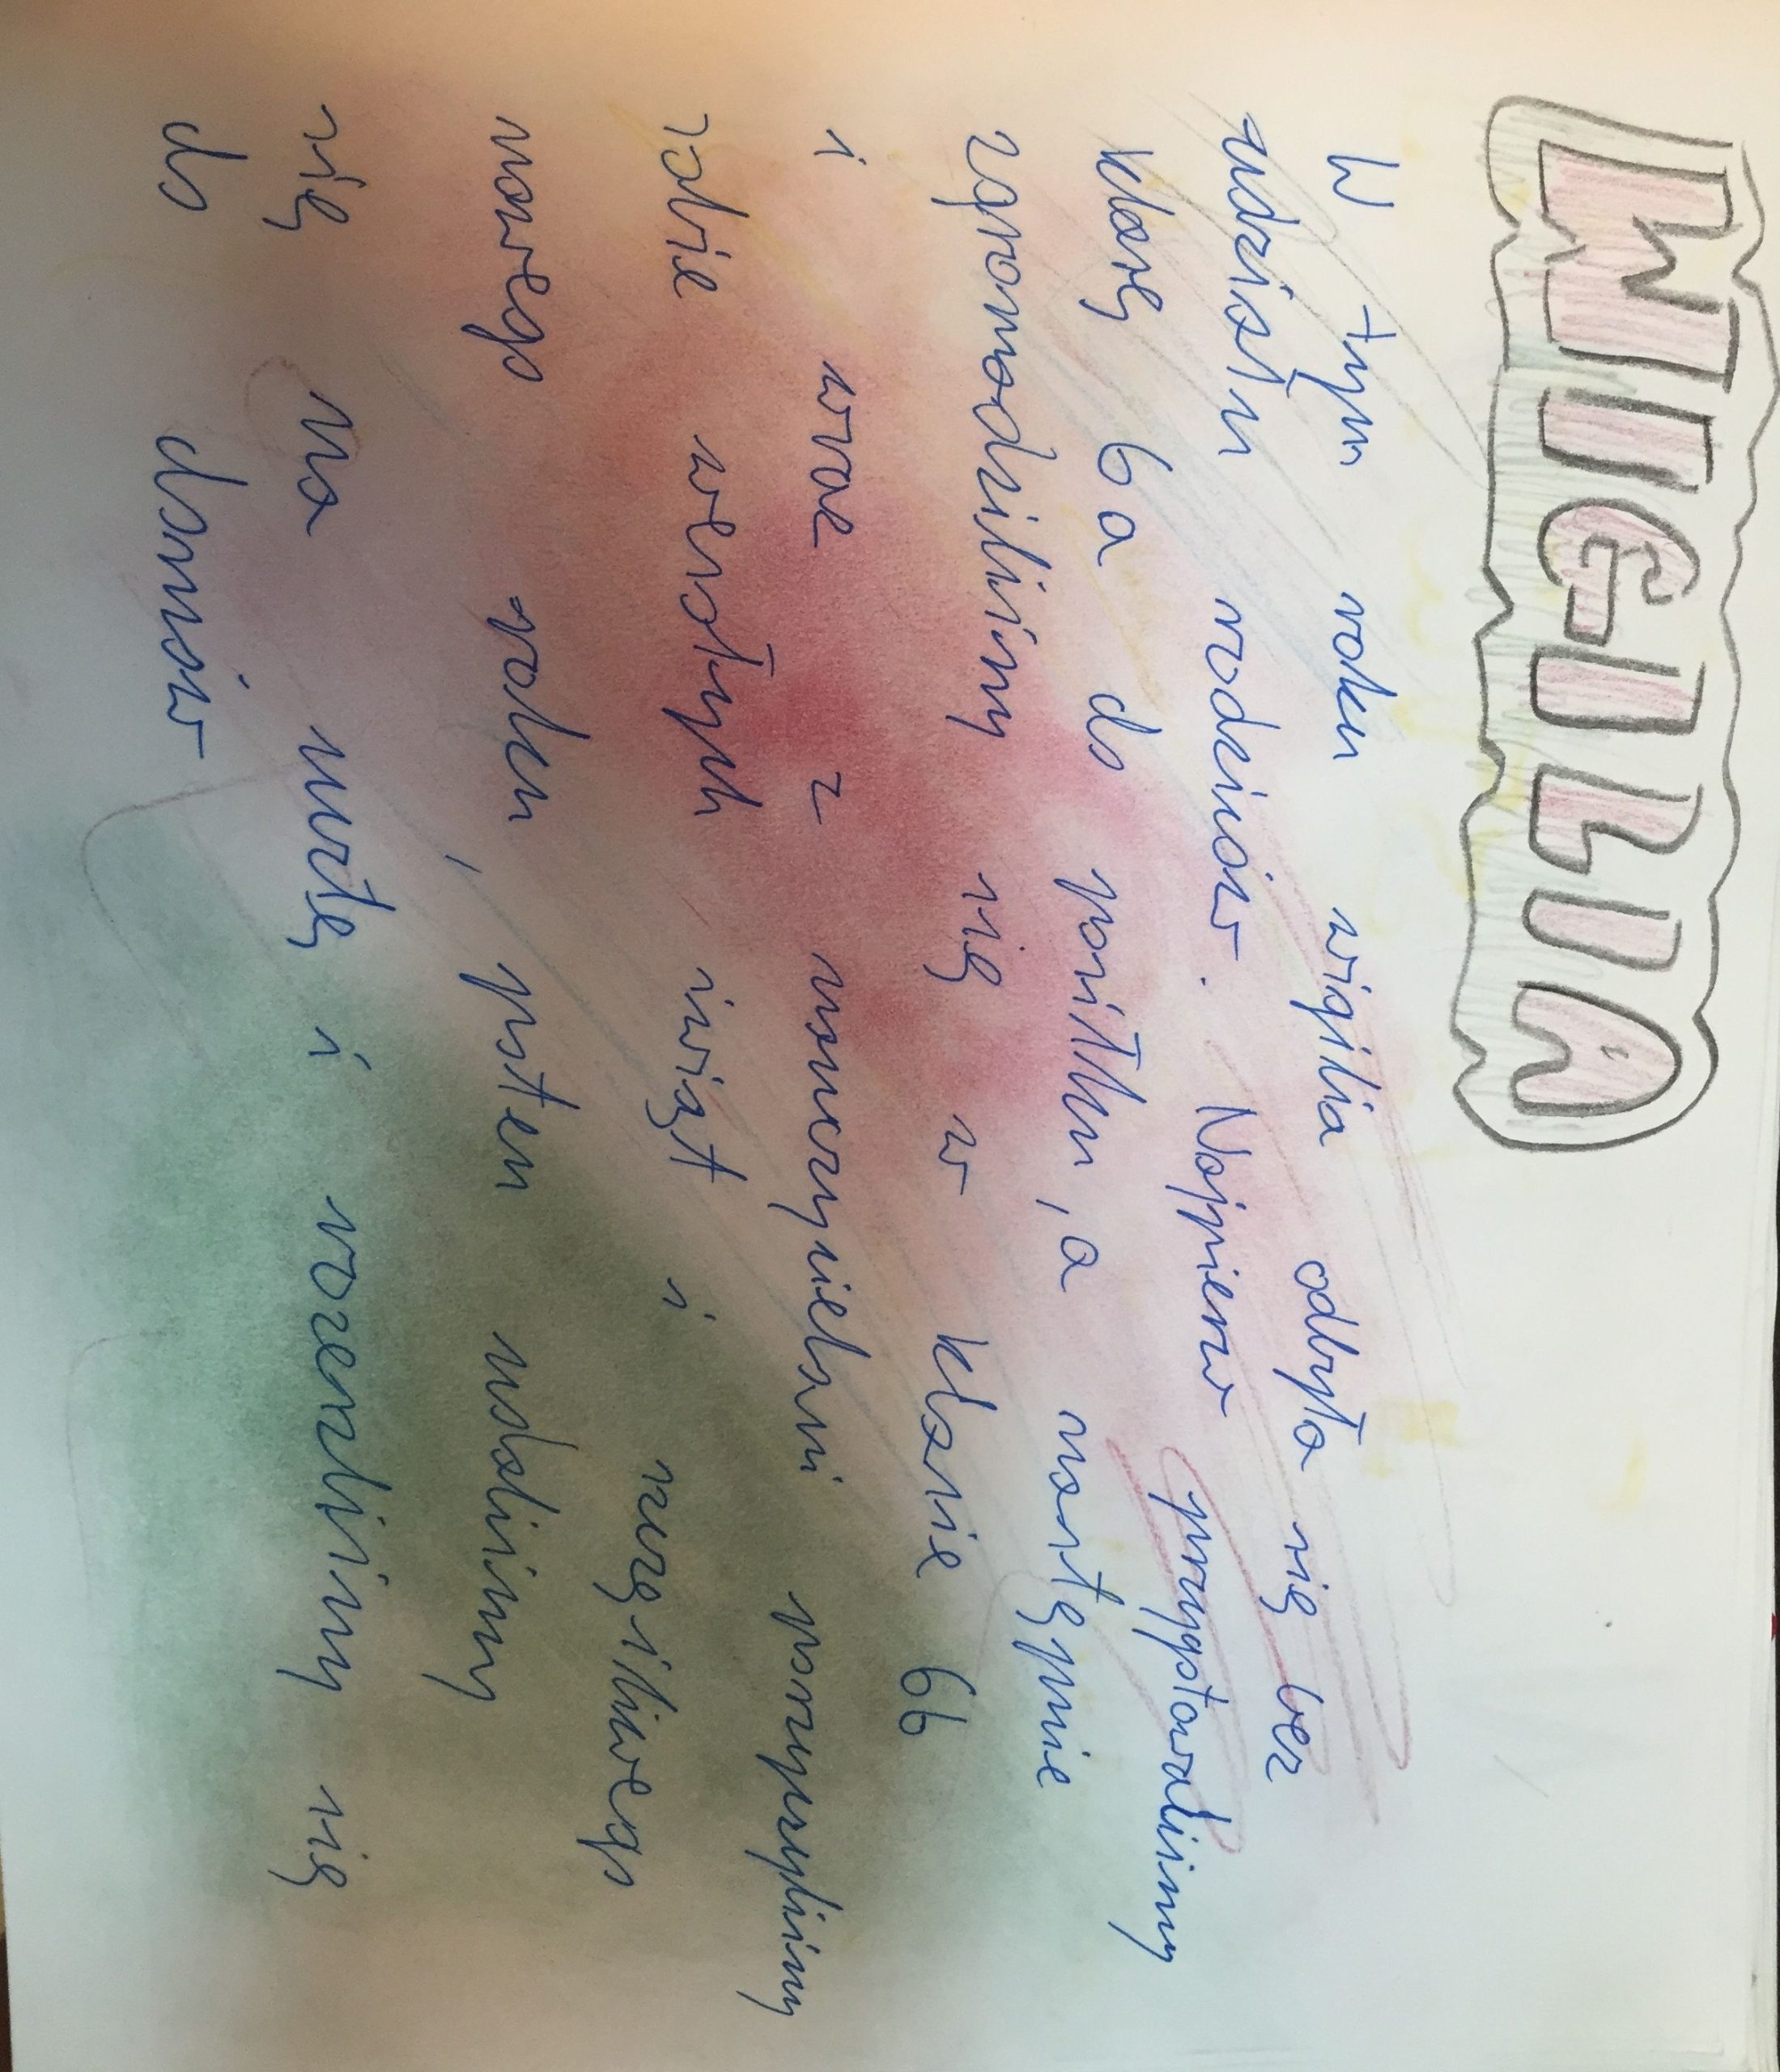 WIGILIA
W tym roku wigilia odbyła się bez
udziału rodziców. Najpierw przygotowaliśmy
klasę 6a do posiłku, a następnie
zgromadziliśmy się w klasie 6b
i wraz z nauczycielami poszczyliśmy
sobie wesołych świąt i szczęśliwego
nowego roku, potem udaliśmy
się na nutę i rozeszliśmy się
do domów